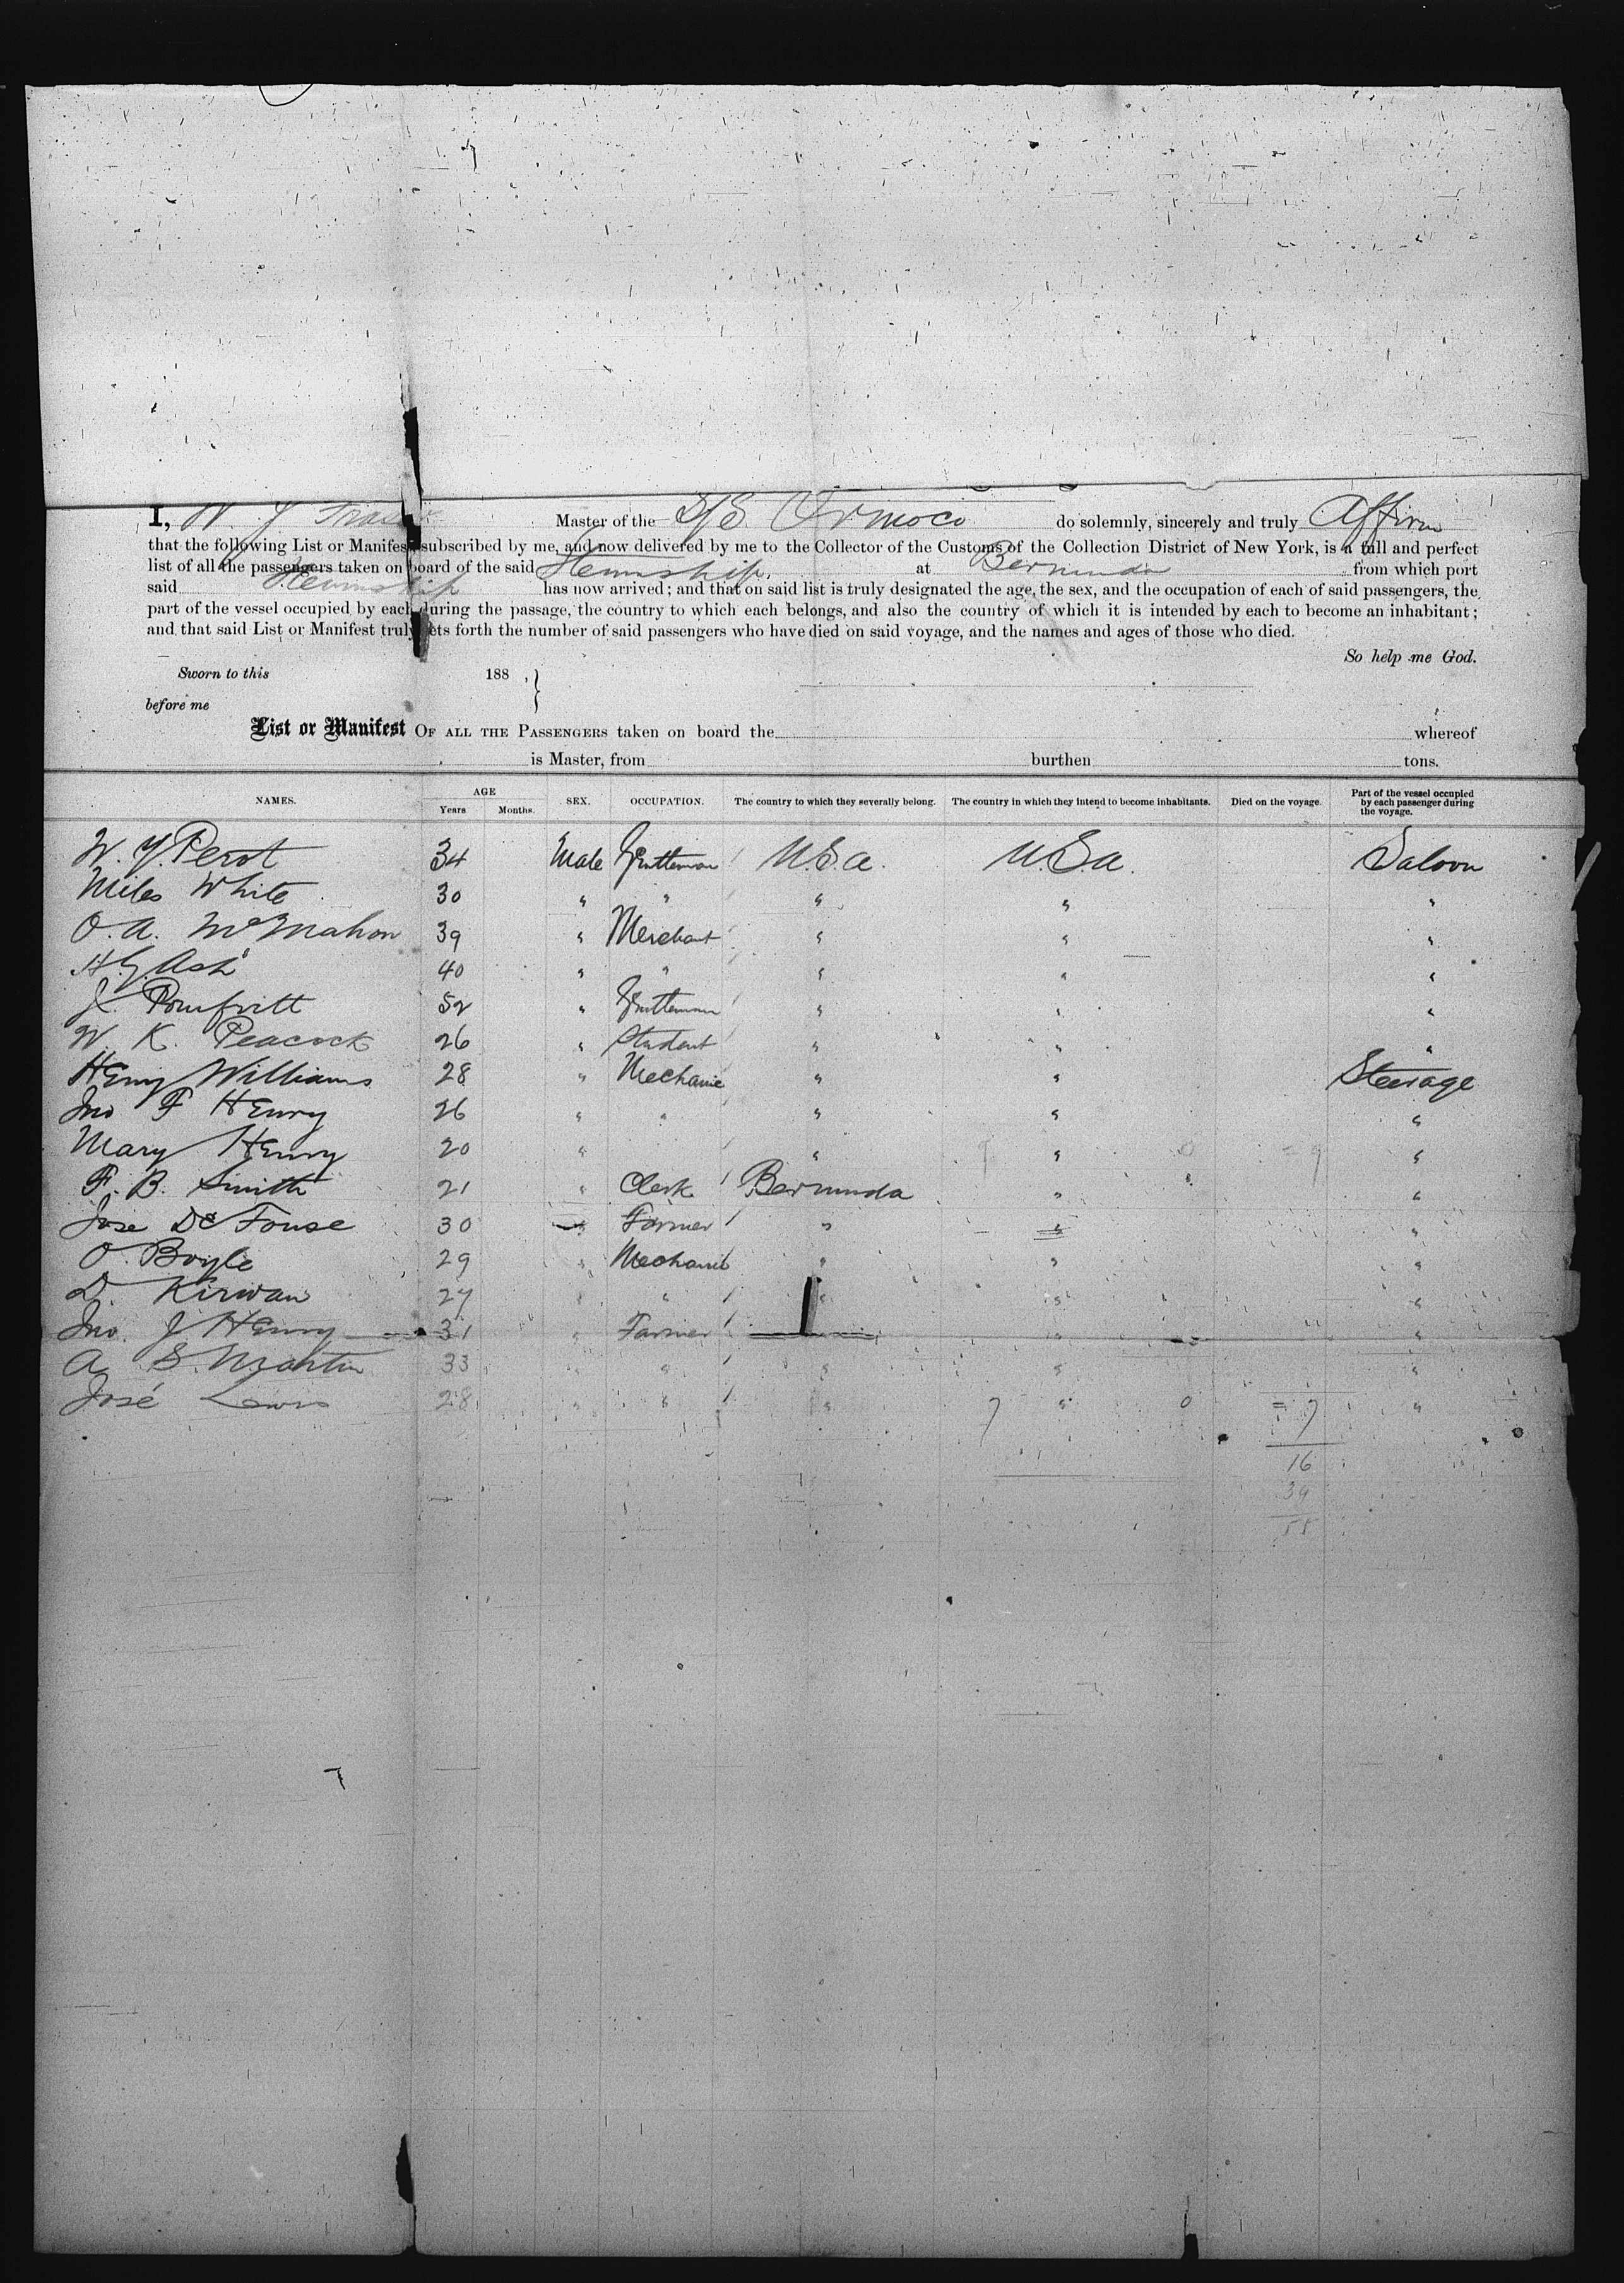 I, W. J. Fraser Master of the S/S Ormoco do solemnly, sincerely and truly Affirm
that the following List or Manifest subscribed by me, and now delivered by me to the Collector of the Customs of the Collection District of New York, is a full and perfect
list of all the passengers taken on board of the said Steamship, at Bermuda from which port
said Steamship has now arrived; and that on said list is truly designated the age, the sex, and the occupation of each of said passengers, the
part of the vessel occupied by each during the passage, the country to which each belongs, and also the country of which it is intended by each to become an inhabitant;
and that said List or Manifest truly sets forth the number of said passengers who have died on said voyage, and the names and ages of those who died.
So help me God.
Sworn to this 188 , }
before me
List or Manifest OF ALL THE PASSENGERS taken on board the whereof
is Master, from burthen tons.
NAMES. AGE Years Months. SEX. OCCUPATION. The country to which they severally belong. The country in which they intend to become inhabitants. Died on the voyage. Part of the vessel occupied by each passenger during the voyage.
W. Y Perot 34 Male Gentleman / U.S.a. U.S.a. Saloon
Miles White 30 " " / " " "
O. A. McMahon 39 " Merchant / " " "
H G Ash 40 " " / " " "
J. Pomfritt 52 " Gentleman / " " "
W. K. Peacock 26 " Student / " " "
Henry Williams 28 " Mechanic " " Steerage
Jno F Henry 26 " " / " " "
Mary Henry 20 " / " 9 " 0 = 9 "
F. B. Smith 21 " Clerk / Bermuda " "
Jose De Fouse 30 " Farmer / " " "
O. Boyle 29 " Mechanic " " "
D Kirwan 27 " " / " " "
Jno. J Henry 31 " Farmer / " " "
A S. Martin 33 " " / " " "
José Lewis 28 " " / " 7 " 0 = 7 "
16
39
55